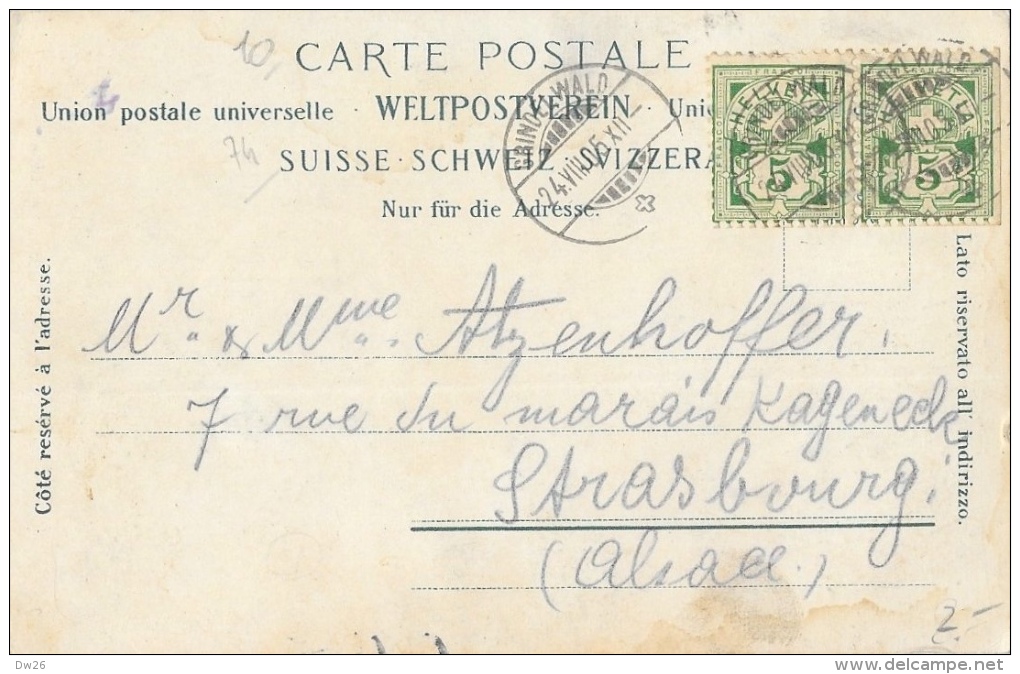 10,
CARTE POSTALE
Union postale universelle · WELTPOSTVEREIN · Uni
74
SUISSE · SCHWEIZ · SVIZZERA
Nur für die Adresse.
GRINDELWALD
24.VII.05 XII
HELVETIA
5
HELVETIA
5
Côté reservé à l'adresse.
Lato riservato all' indirizzo.
Mr. & Mme. Atzenhoffer.
7 rue du marais Kageneck
Strasbourg.
(Alsace.)
2.-
Dw26
delcampe.net